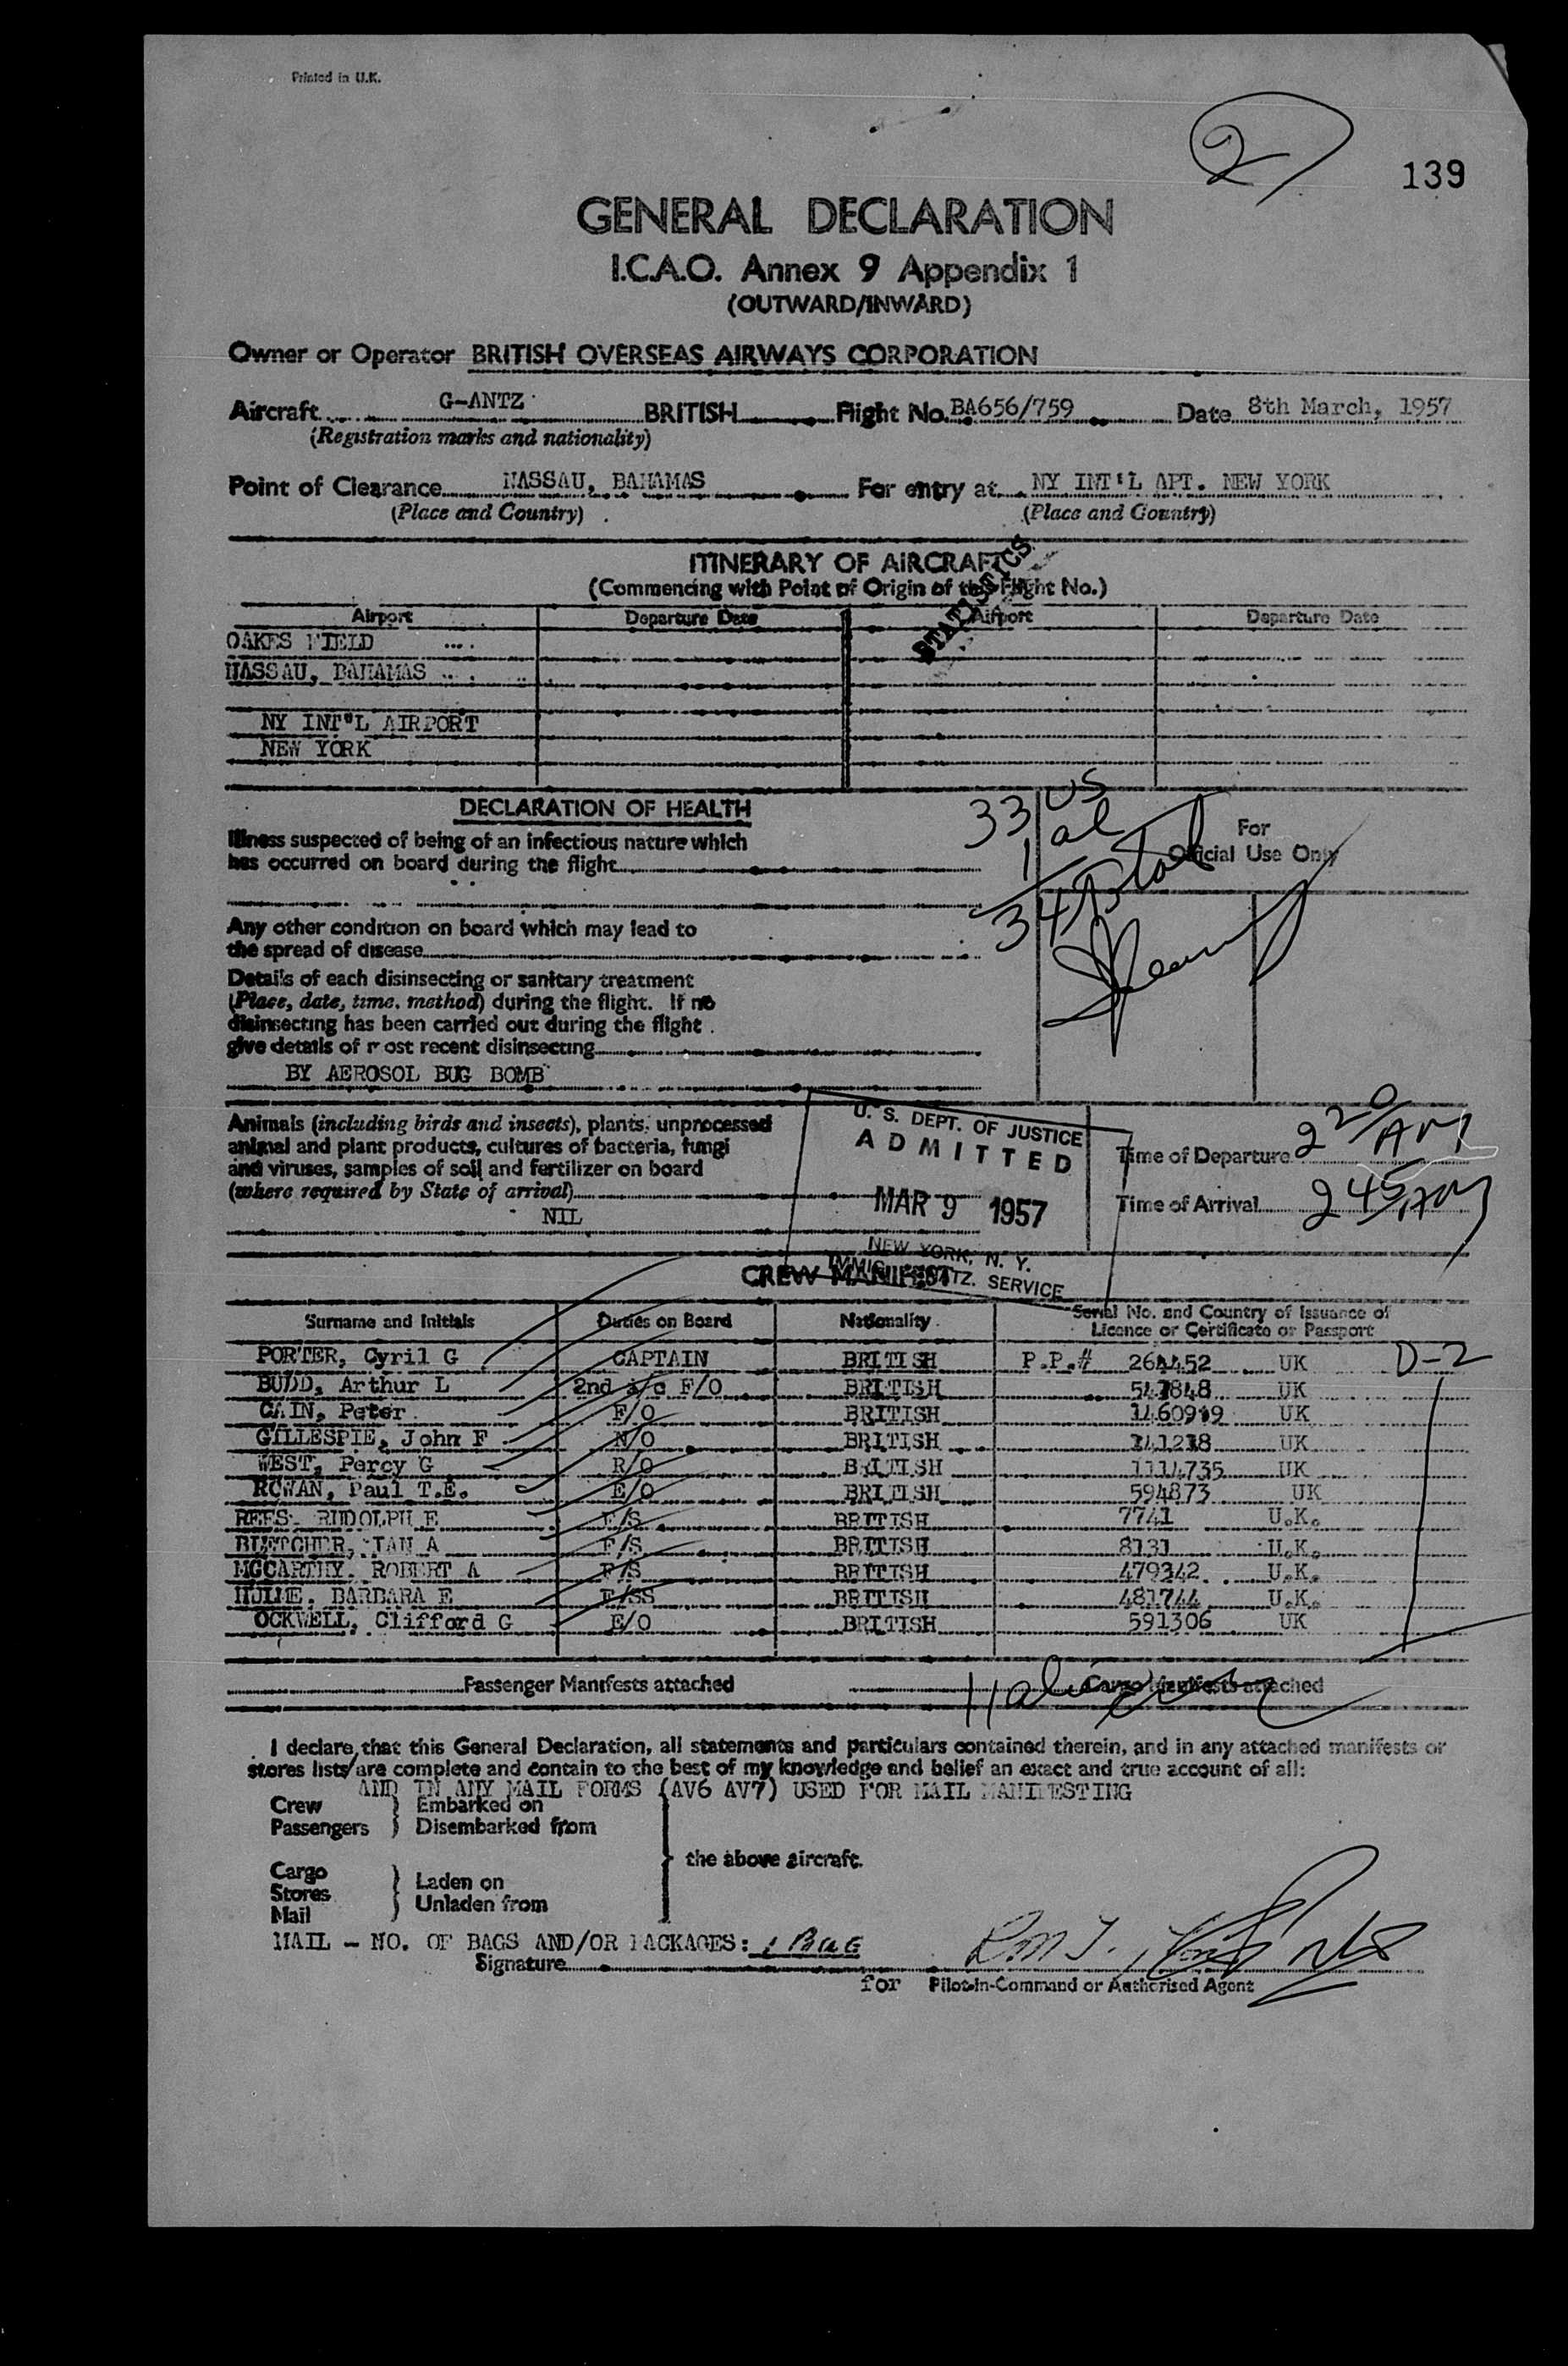 Printed in U.K.
2
139
GENERAL DECLARATION
I.C.A.O. Annex 9 Appendix 1
(OUTWARD/INWARD)
Owner or Operator BRITISH OVERSEAS AIRWAYS CORPORATION
Aircraft G-ANTZ BRITISH Flight No. BA656/759 Date 8th March, 1957
(Registration marks and nationality)
Point of Clearance NASSAU, BAHAMAS For entry at NY INT'L APT. NEW YORK
(Place and Country) (Place and Country)
ITINERARY OF AIRCRAFT
(Commencing with Point of Origin of this Flight No.)
STATISTICS
Airport Departure Date Airport Departure Date
OAKES FIELD
NASSAU, BAHAMAS
NY INT'L AIRPORT
NEW YORK
DECLARATION OF HEALTH
33 US
1 al
34 total
For
Official Use Only
Illness suspected of being of an infectious nature which
has occurred on board during the flight
Any other condition on board which may lead to
the spread of disease
Details of each disinsecting or sanitary treatment
(Place, date, time, method) during the flight. If no
disinsecting has been carried out during the flight
give details of most recent disinsecting
BY AEROSOL BUG BOMB
Animals (including birds and insects), plants, unprocessed
animal and plant products, cultures of bacteria, fungi
and viruses, samples of soil and fertilizer on board
(where required by State of arrival)
NIL
U. S. DEPT. OF JUSTICE
ADMITTED
MAR 9 1957
NEW YORK, N. Y.
IMMIG. NATZ. SERVICE
Time of Departure 2 20/AM
Time of Arrival 2 45/AM
CREW MANIFEST
Surname and Initials Duties on Board Nationality Serial No. and Country of Issuance of
Licence or Certificate or Passport
PORTER, Cyril G CAPTAIN BRITISH P.P.# 264452 UK D-2
BUDD, Arthur L 2nd a/c F/O BRITISH 547848 UK
CAIN, Peter F/O BRITISH 1460919 UK
GILLESPIE, John F N/O BRITISH 141218 UK
WEST, Percy G R/O BRITISH 1114735 UK
ROWAN, Paul T.E. E/O BRITISH 594873 UK
REES, RUDOLPH E F/S BRITISH 7741 U.K.
IAN A F/S BRITISH 8131 U.K.
MCCARTHY, ROBERT A F/S BRITISH 479342 U.K.
HULME, BARBARA E F/SS BRITISH 481744 U.K.
OCKWELL, Clifford G E/O BRITISH 591306 UK
Passenger Manifests attached Cargo Manifests attached
11 aliens
I declare that this General Declaration, all statements and particulars contained therein, and in any attached manifests or
stores lists are complete and contain to the best of my knowledge and belief an exact and true account of all:
AND IN ANY MAIL FORMS (AV6 AV7) USED FOR MAIL MANIFESTING
Crew } Embarked on
Passengers } Disembarked from
the above aircraft.
Cargo
Stores } Laden on
Mail } Unladen from
MAIL - NO. OF BAGS AND/OR PACKAGES: 1 BAG
Signature
for Pilot-in-Command or Authorised Agent